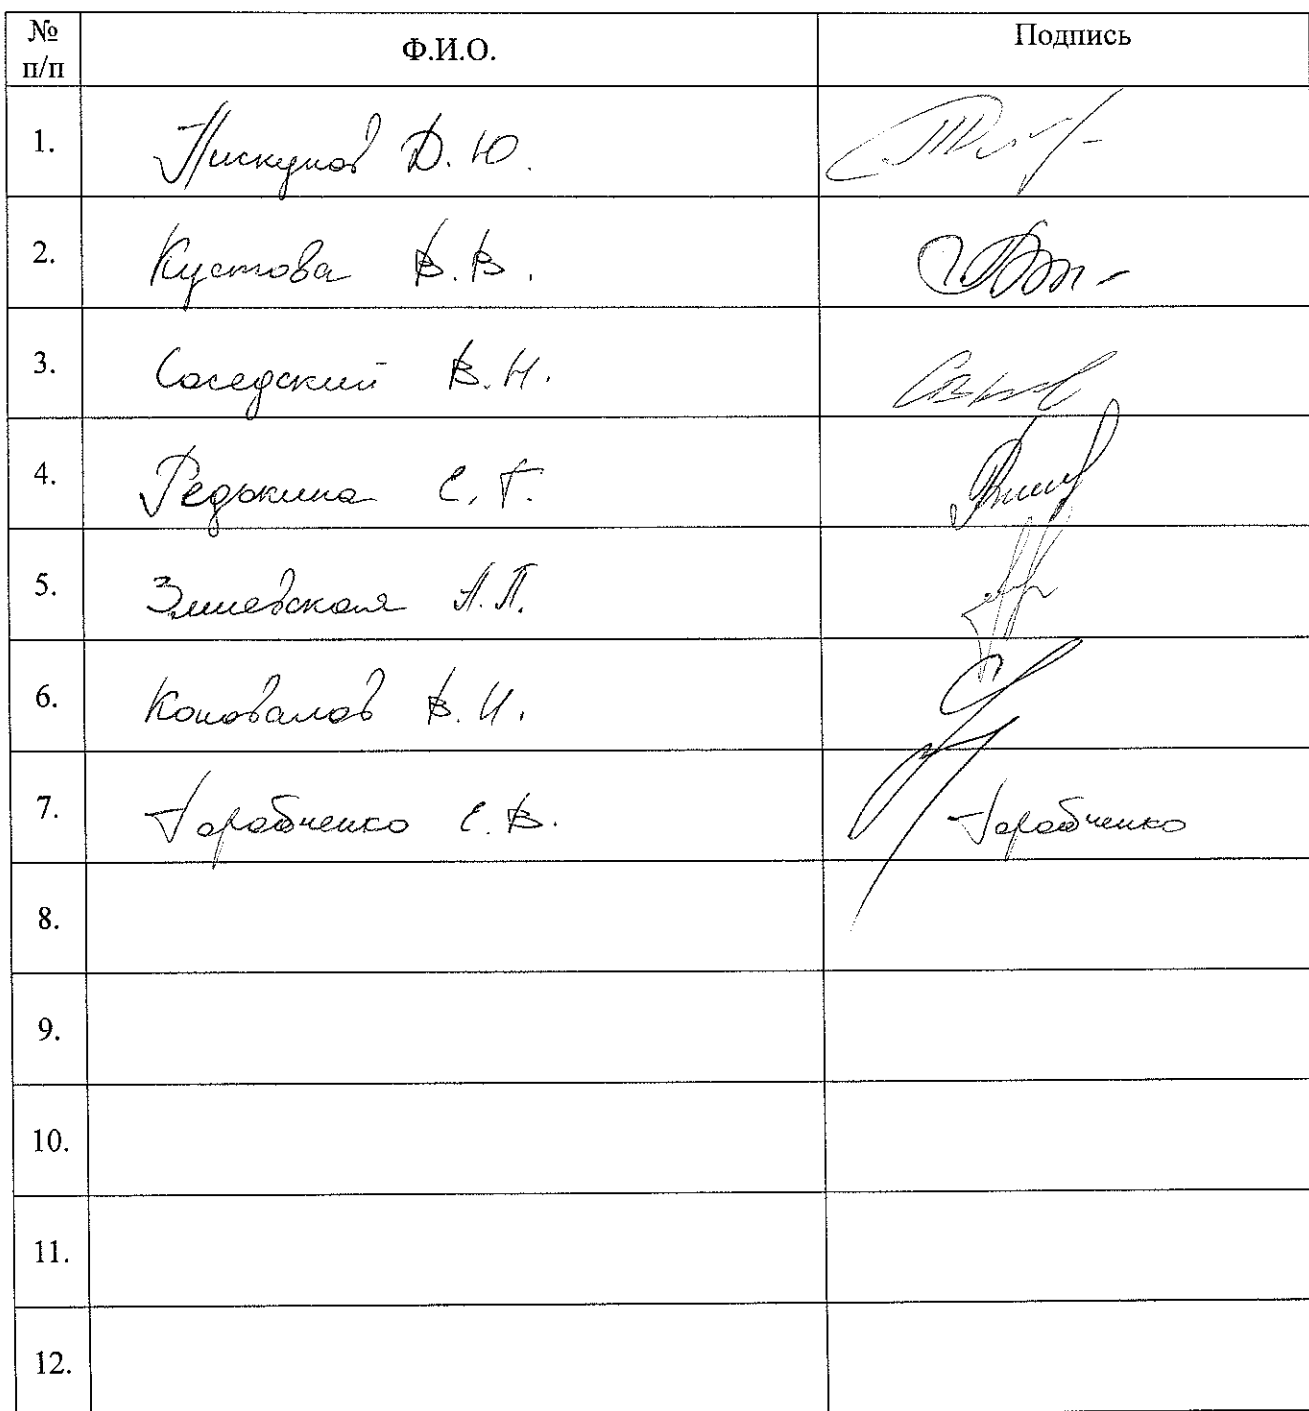 № п/п Ф.И.О. Подпись
1. Пискунов Д.Ю.
2. Кустова В.В.
3. Соседский В.Н.
4. Редькина С.Г.
5. Змиевская Л.П.
6. Коновалов В.И.
7. Горобченко Е.В. Горобченко
8.
9.
10.
11.
12.